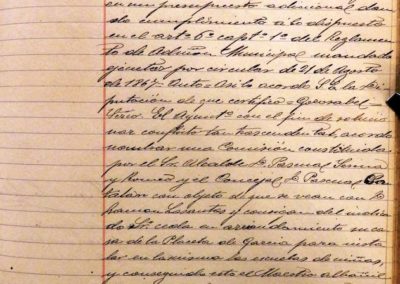 en un presupuesto adicional dan-
do cumplimiento á lo dispuesto
en el artº 6º capº 1º del Reglamen-
to de Admon Municipal mandado
ejecutar por circular de 21 de Agosto
de 1867. Auto = Asi lo acordó S.S. la Di-
putación de que certifico =
El Ayuntº con el fin de solucio-
nar conflicto tan trascendental, acordo
nombrar una Comisión constituida
por el Sr. Alcalde D. Pascual
y y el Concejal D. Pascual
con objeto de que se vean con D.
Ramon y consigan del indica-
do Sr. ceda en arrendamiento su ca-
sa de la Placeta de Garcia para insta-
lar en la misma las escuelas de niñas,
y conseguido esto el Maestro albañil